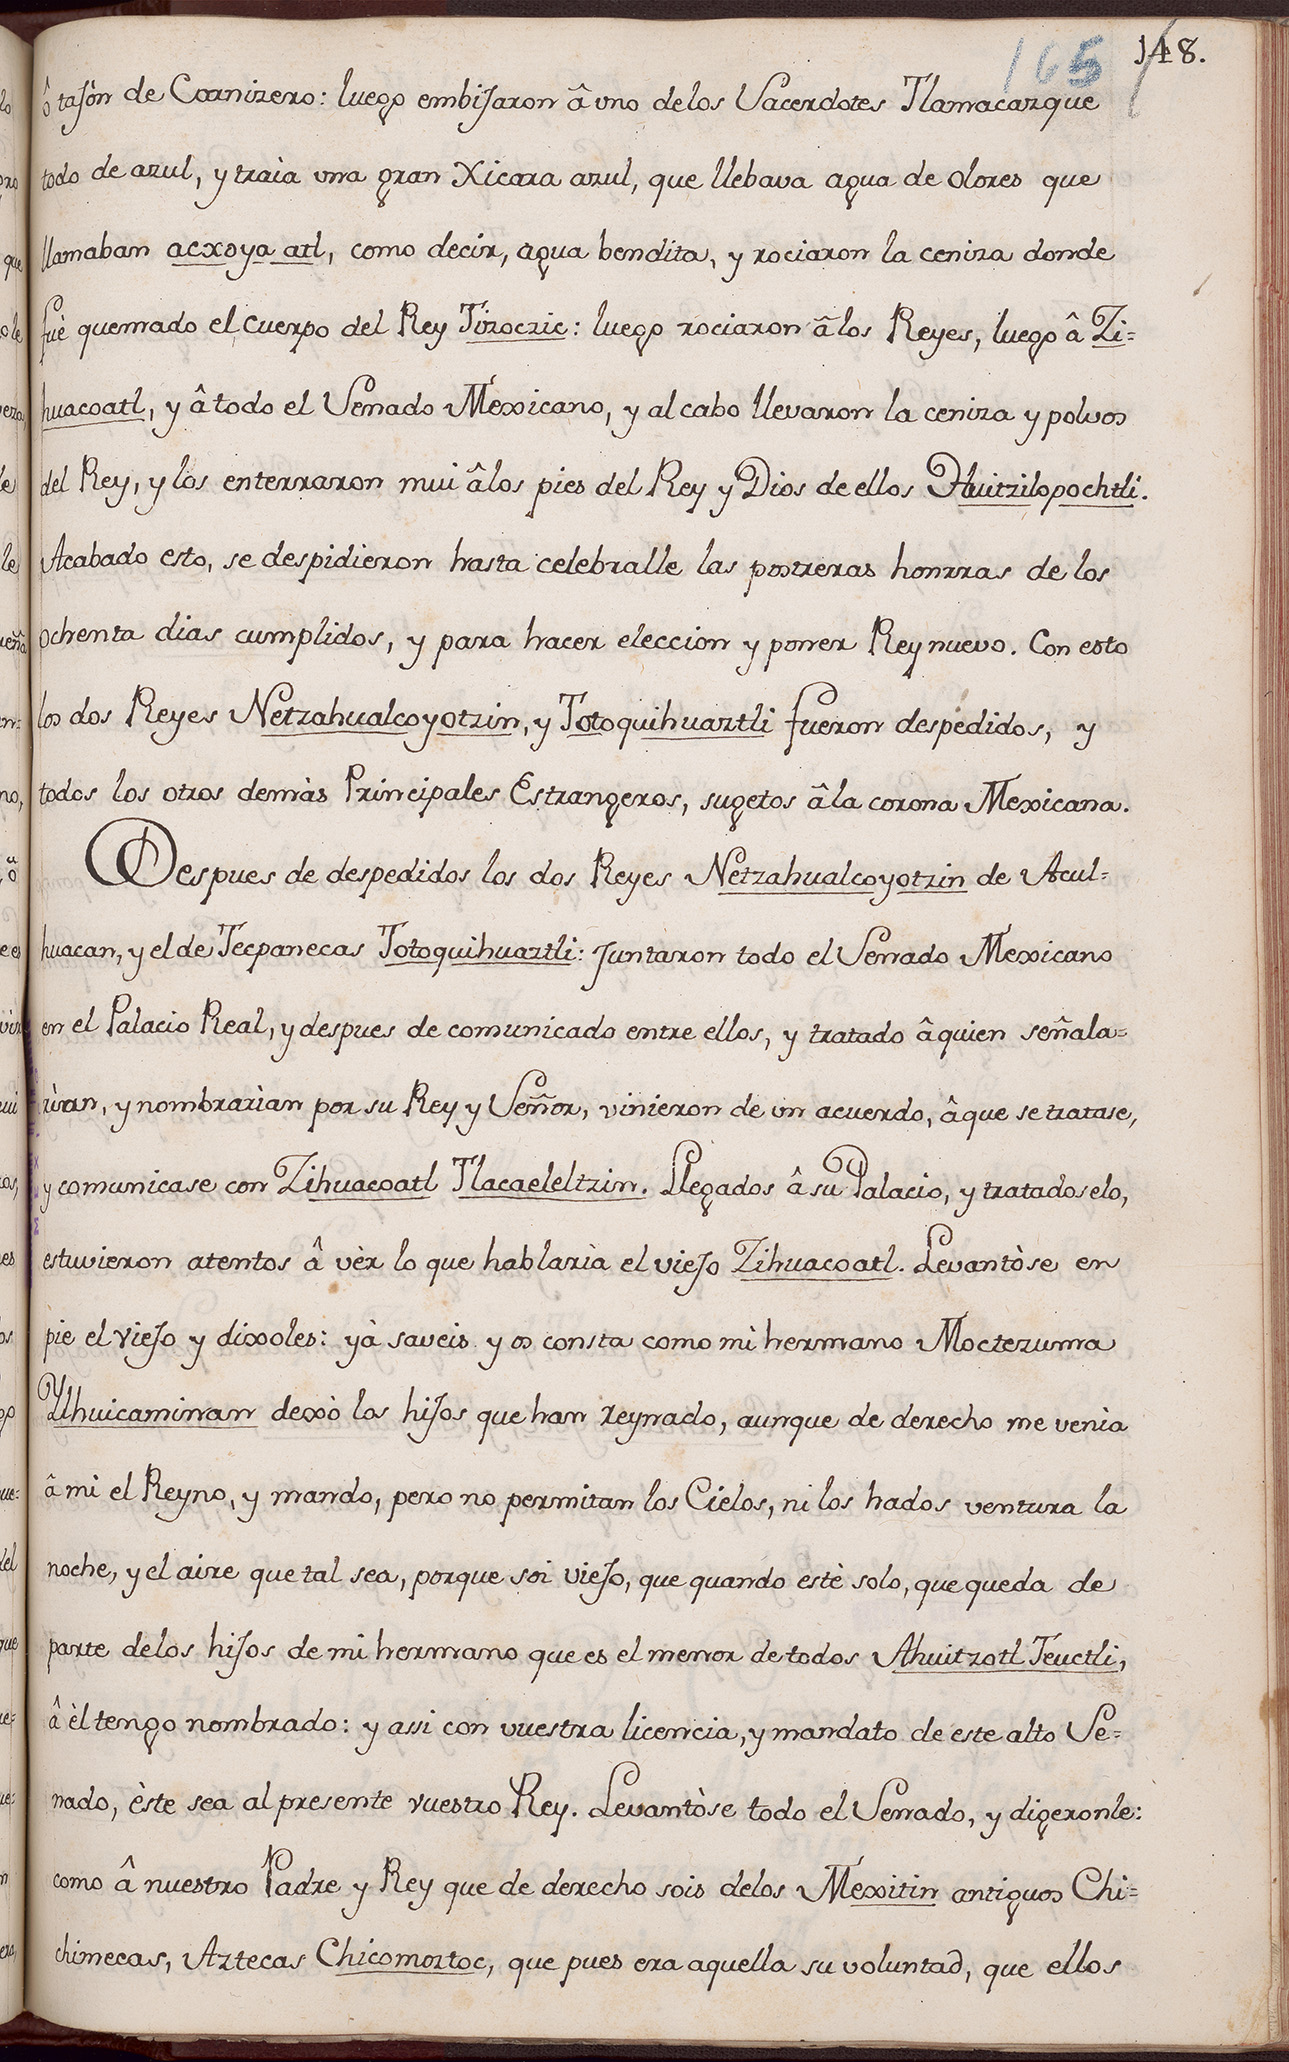 165 148.
ô tajòn de Carnizero: luego embijaron â vno de los Sacerdotes Tlamacazque
todo de azul, y traìa vna gran Xicara azul, que llebava agua de olores que
llamaban acxoya atl, como decir, agua bendita, y rociaron la ceniza donde
fuè quemado el cuerpo del Rey Tizoczic: luego rociaron â los Reyes, luego â Zi=
huacoatl, y â todo el Senado Mexicano, y al cabo llevaron la ceniza y polvos
del Rey, y los enterraron mui â los pies del Rey y Dios de ellos Huitzilopochtli.
Acabado esto, se despidieron hasta celebralle las postreras honrras de los
ochenta dias cumplidos, y para hacer eleccion y poner Rey nuevo. Con esto
los dos Reyes Netzahualcoyotzin, y Totoquihuaztli fueron despedidos, y
todos los otros demàs Principales Estrangeros, sugetos â la corona Mexicana.
Despues de despedidos los dos Reyes Netzahualcoyotzin de Acul=
huacan, y el de Tecpanecas Totoquihuaztli: Juntaron todo el Senado Mexicano
en el Palacio Real, y despues de comunicado entre ellos, y tratado â quien señala=
rìan, y nombrarìan por su Rey y Señor, vinieron de un acuerdo, â que se tratase,
y comunicase con Zihuacoatl Tlacaeleltzin. Llegados â su Palacio, y tratadoselo,
estuvieron atentos â vèr lo que hablarìa el viejo Zihuacoatl. Levantòse en
pie el viejo y dixoles: yà saveis y os consta como mi hermano Moctezuma
Ylhuicaminan dexò los hijos que han reynado, aunque de derecho me venìa
â mi el Reyno, y mando, pero no permitan los Cielos, ni los hados ventura la
noche, y el aire que tal sea, porque soi viejo, que quando estè solo, que queda de
parte de los hijos de mi hermano que es el menor de todos Ahuitzotl Teuctli,
â èl tengo nombrado: y assi con vuestra licencia, y mandato de este alto Se=
nado, èste sea al presente vuestro Rey. Levantòse todo el Senado, y digeronle:
como â nuestro Padre y Rey que de derecho sois de los Mexitin antiguos Chi=
chimecas, Aztecas Chicomoztoc, que pues era aquella su voluntad, que ellos